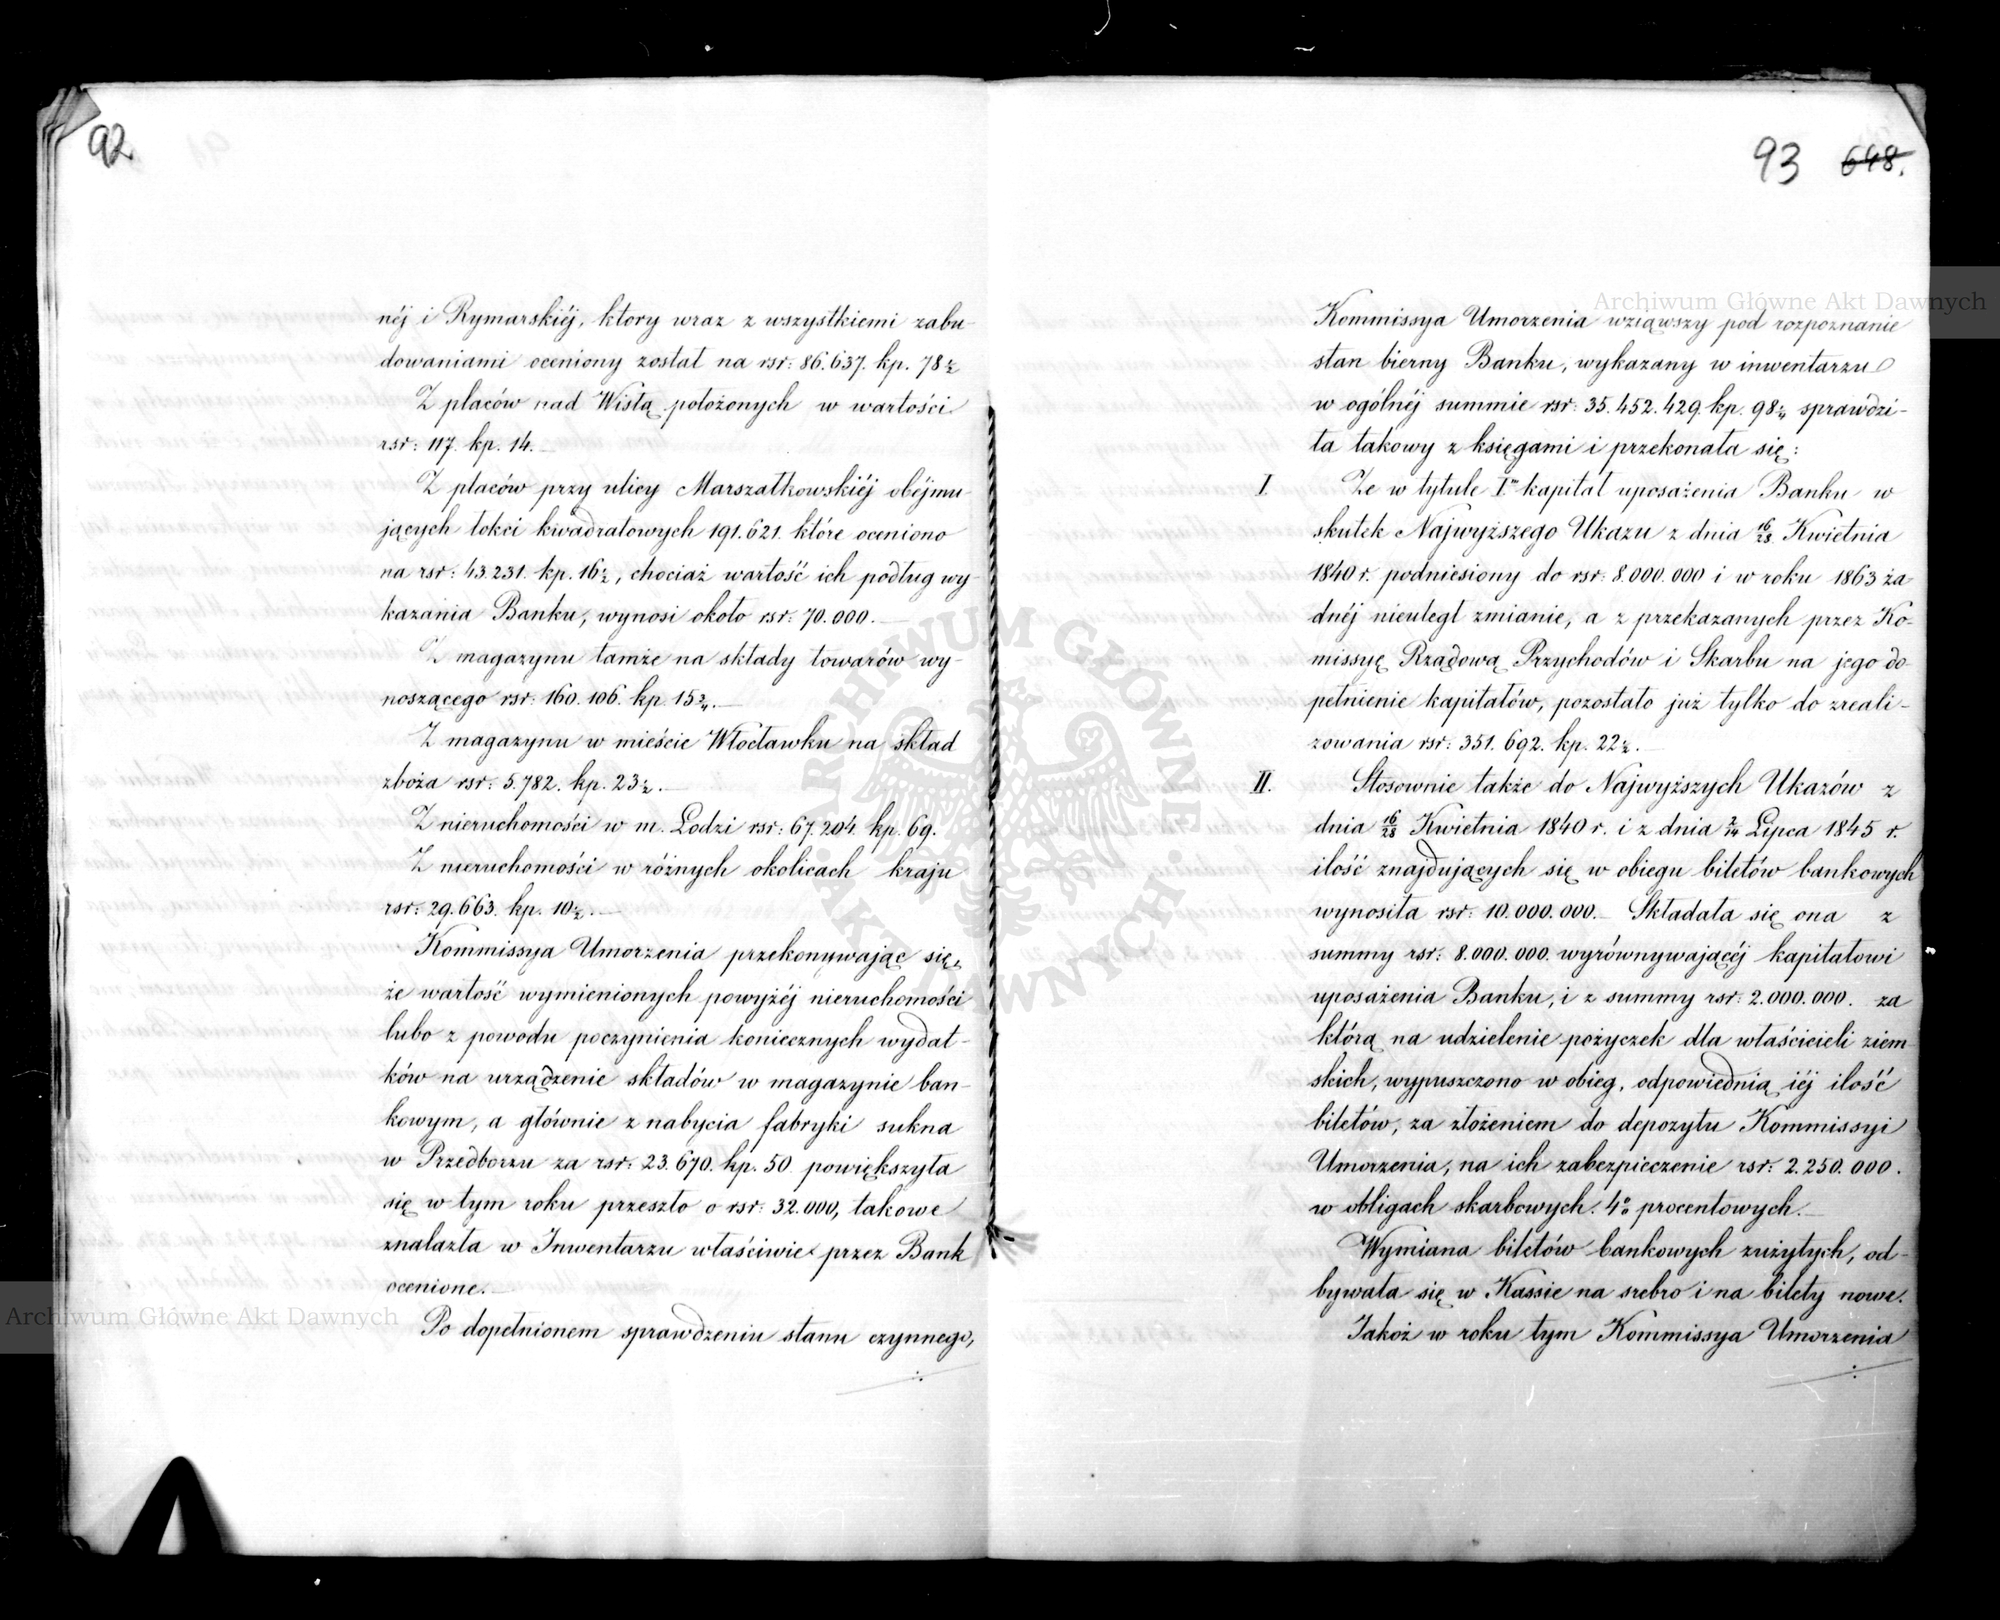 92
néj i Rymarskiéj, ktory wraz z wszystkiemi zabu-
dowaniami oceniony został na rsr: 86.637. kp. 78½
Z placów nad Wisłą położonych w wartości
rsr: 117. kp. 14.
Z placów przy ulicy Marszałkowskiéj obéjmu-
jących łokci kwadratowych 191.621. które oceniono
na rsr: 43.231. kp. 16½, chociaż wartość ich podług wy-
kazania Banku, wynosi około rsr: 70.000.
Z magazynu tamże na składy towarów wy-
noszącego rsr: 160.106. kp. 15¾.
Z magazynu w mieście Włocławku na skład
zboża rsr: 5.782. kp. 23½.
Z nieruchomości w m. Łodzi rsr: 67.204. kp. 69.
Z nieruchomości w różnych okolicach kraju
rsr: 29.663. kp. 10½.
Kommissya Umorzenia przekonywając się,
że wartość wymienionych powyżéj nieruchomości
lubo z powodu poczynienia koniecznych wydat-
ków na urządzenie składów w magazynie ban-
kowym, a głównie z nabycia fabryki sukna
w Przedborzu za rsr: 23.670. kp. 50. powiększyła
się w tym roku przeszło o rsr: 32.000, takowe
znalazła w Inwentarzu właściwie przez Bank
ocenione.
Po dopełnionem sprawdzeniu stanu czynnego,
93 648.
Kommissya Umorzenia wziąwszy pod rozpoznanie
stan bierny Banku, wykazany w inwentarzu
w ogólnéj summie rsr: 35.452.429. kp. 98¾ sprawdzi-
ła takowy z księgami i przekonała się:
I. Że w tytule Iᵐ kapitał uposażenia Banku w
skutek Najwyższego Ukazu z dnia 16/28 Kwietnia
1840 r. podniesiony do rsr: 8.000.000 i w roku 1863 ża-
dnéj nieuległ zmianie, a z przekazanych przez Ko-
missyę Rządową Przychodów i Skarbu na jego do-
pełnienie kapitałów, pozostało już tylko do zreali-
zowania rsr: 351.692. kp. 22½.
II. Stosownie także do Najwyższych Ukazów z
dnia 16/28 Kwietnia 1840 r. i z dnia 2/14 Lipca 1845 r.
ilość znajdujących się w obiegu biletów bankowych
wynosiła rsr: 10.000.000. Składała się ona z
summy rsr: 8.000.000. wyrównywającéj kapitałowi
uposażenia Banku, i z summy rsr: 2.000.000. za
którą na udzielenie pożyczek dla właścicieli ziem-
skich, wypuszczono w obieg, odpowiednią iéj ilość
biletów, za złożeniem do depozytu Kommissyi
Umorzenia, na ich zabezpieczenie rsr: 2.250.000.
w obligach skarbowych 4% procentowych.
Wymiana biletów bankowych zużytych, od-
bywała się w Kassie na srebro i na bilety nowe.
Jakoż w roku tym Kommissya Umorzenia
Archiwum Główne Akt Dawnych
Archiwum Główne Akt Dawnych
ARCHIWUM GŁÓWNE AKT DAWNYCH